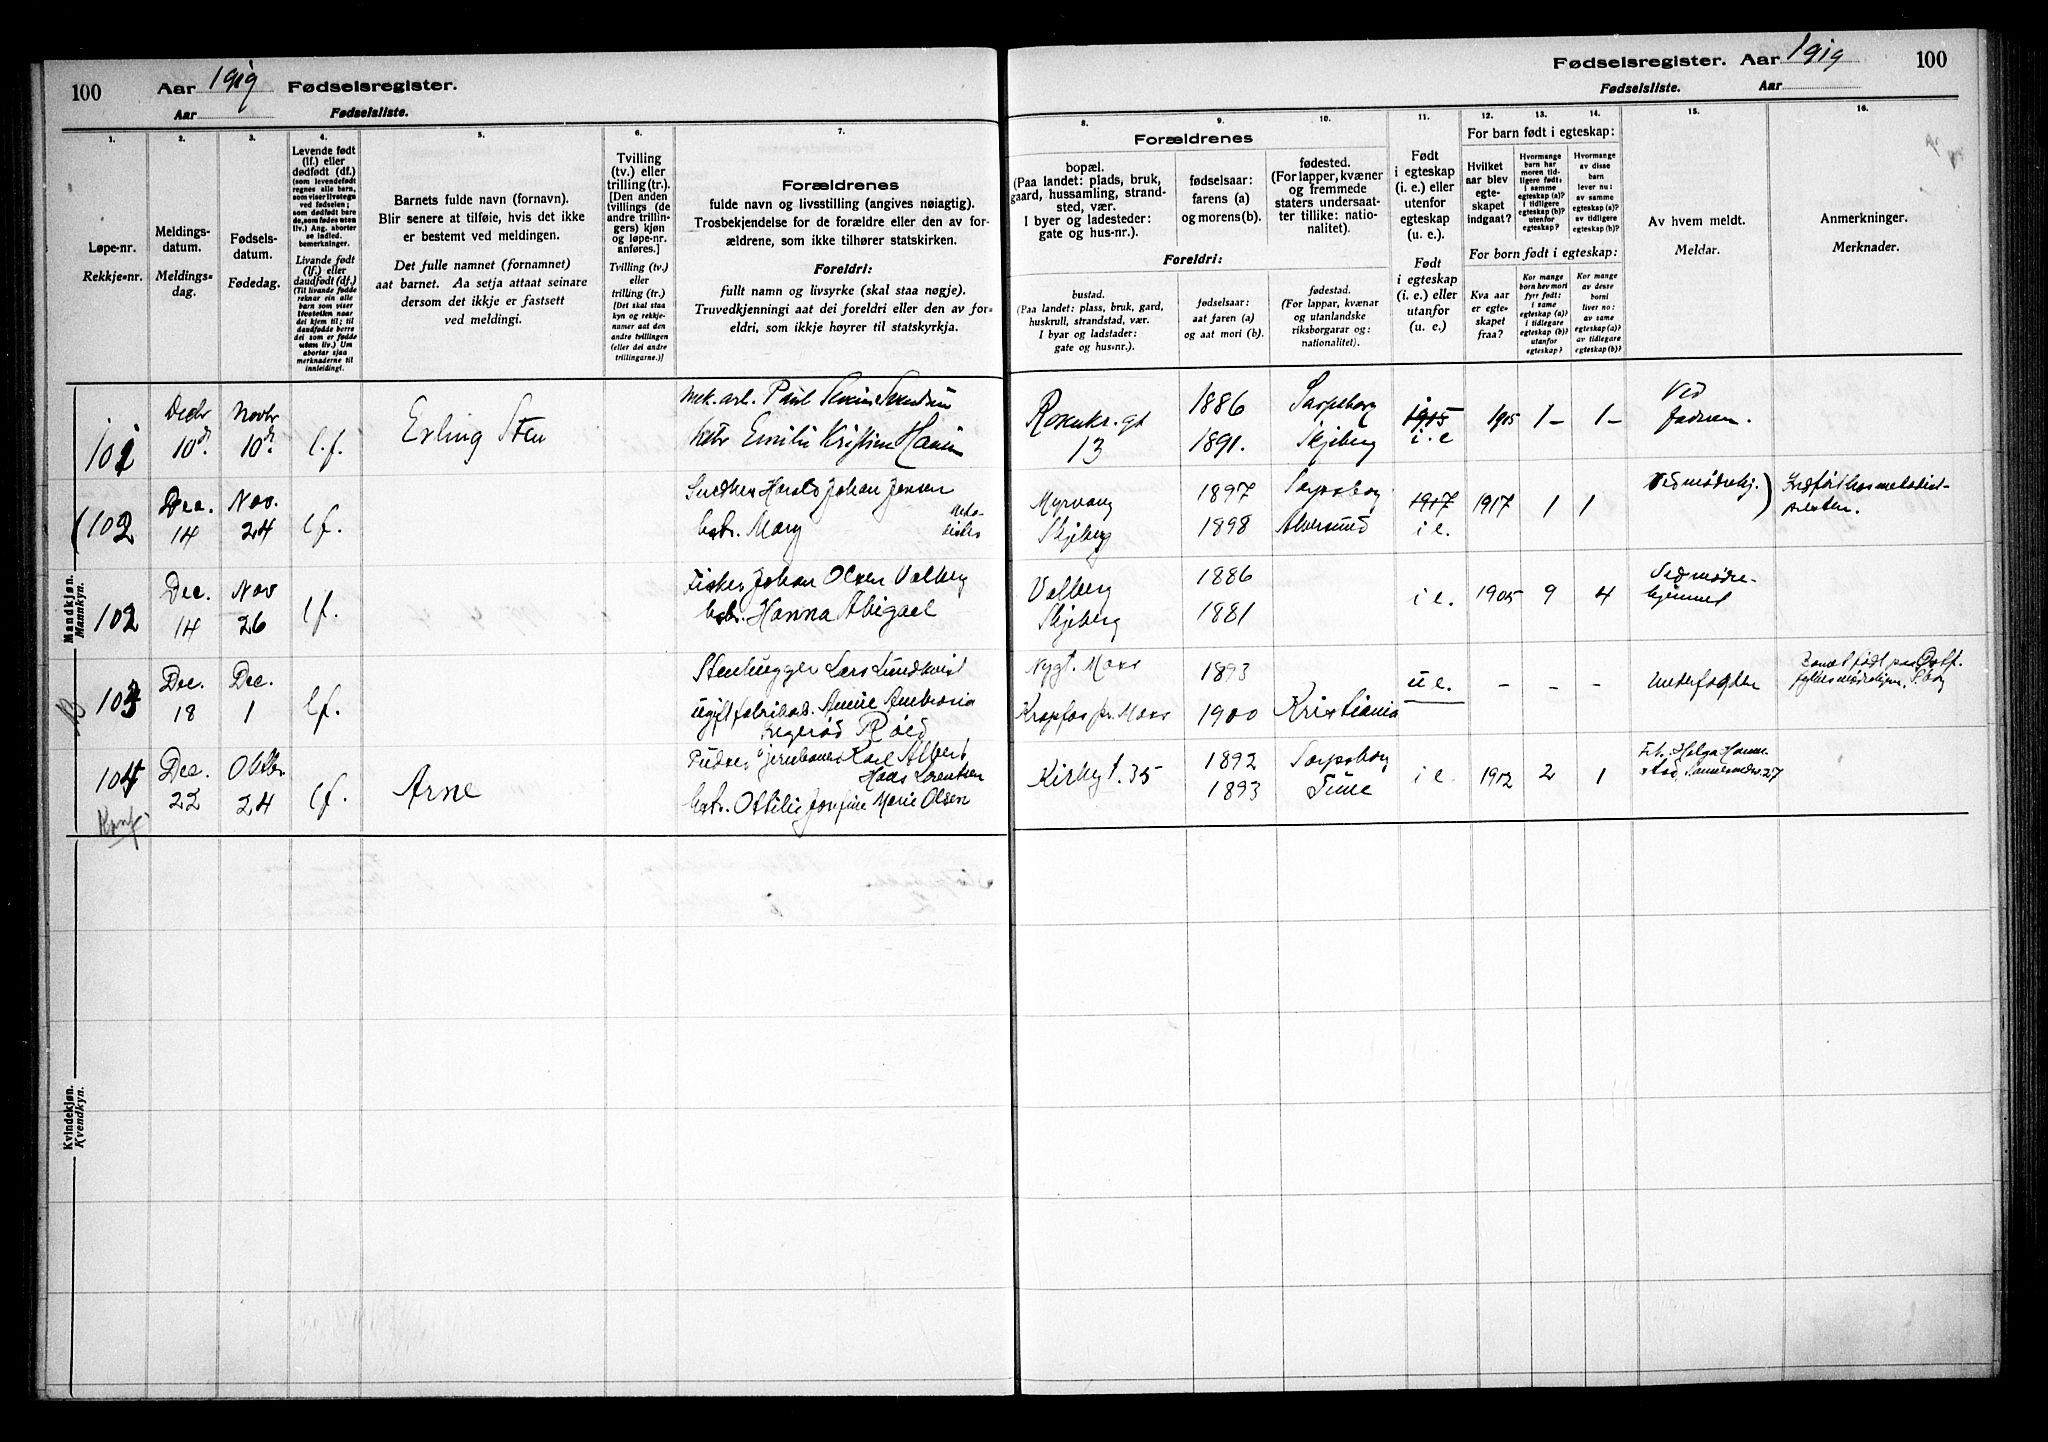 100
Aar 1919 Fødselsregister.
Aar Fødselsliste.
Fødselsregister. Aar 1919
100
Fødselsliste. Aar
1.
2.
3.
4.
5.
6.
7.
8.
9.
10.
11.
12.
13.
14.
15.
16.
Løpe-nr.
Rekkje-nr.
Meldings-
datum.
Meldings-
dag.
Fødsels-
datum.
Fødedag.
Levende født
(lf.) eller
dødfødt (df.)
(som levendefødt
regnes alle barn,
som viser livstegn
ved fødselen;
som dødfødt bare
de, som fødes uten
liv.) Ang. aborter
se indled.
bemerkninger.
Livande fødd
(lf.) eller
daudfødd (df.)
(Til livande fødde
reknar ein alle
barn som viser
livsteikn naar
dei kjem til; til
daudfødde berre
dei som er fødde
utan liv.) Um
abortar sjaa
merknaderne til
innleidingi.
Barnets fulde navn (fornavn).
Blir senere at tilføie, hvis det ikke
er bestemt ved meldingen.
Det fulle namnet (fornamnet)
aat barnet. Aa setja attaat seinare
dersom det ikkje er fastsett
ved meldingi.
Tvilling
(tv.) eller
trilling (tr.).
[Den anden
tvillings (de
andre trillin-
gers) kjøn
og løpe-nr.
anføres.]
Tvilling (tv.)
eller
trilling (tr.)
[Det skal staa
kyn og rekkje-
numer aat den
andre tvillingen
(eller dei andre
trillingarne.)]
Forældrenes
fulde navn og livsstilling (angives nøiagtig).
Trosbekjendelse for de forældre eller den av for-
ældrene, som ikke tilhører statskirken.
Foreldri:
fullt namn og livsyrke (skal staa nøgje).
Truvedkjenningi aat dei foreldri eller den av for-
eldri, som ikkje høyrer til statskyrkja.
Forældrenes
bopæl.
(Paa landet: plads, bruk,
gaard, hussamling, strand-
sted, vær.
I byer og ladesteder:
gate og hus-nr.).
fødselsaar:
farens (a)
og morens (b).
fødested.
(For lapper, kvæner
og fremmede
staters undersaat-
ter tillike: natio-
nalitet).
Foreldri:
bustad.
(Paa landet: plass, bruk, gard,
huskrull, strandstad, vær.
I byar og ladstader:
gate og hus-nr.).
fødselsaar:
aat faren (a)
og aat mori (b).
fødestad.
(For lappar, kvænar
og utanlandske
riksborgarar og:
nationalitet).
Født
i egteskap
(i. e.) eller
utenfor
egteskap
(u. e.).
Født
i egteskap
(i. e.) eller
utanfor
(u. e.)
For barn født i egteskap:
Hvilket
aar blev
egte-
skapet
indgaat?
Hvormange
barn har
moren tid-
ligere født:
i samme
egteskap (a)?
i tidligere
egteskap (b)?
utenfor
egteskap?
Hvormange
av disse
barn
lever nu:
av samme
egteskap (a)?
av tidligere
egteskap (b)?
For born født i egteskap:
Kva aar
er egte-
skapet
fraa?
Kor mange
born hev mori
fyrr født:
i same
egteskap (a)?
i tidlegare
egteskap (b)?
utanfor
egteskap?
Kor mange
av desse
borni
liver no:
av same
egteskap (a)?
av tidlegare
egteskap (b)?
Av hvem meldt.
Meldar.
Anmerkninger.
Merknader.
Mandkjøn.
Mannkyn.
101
Decbr
10de.
Novbr
10de.
l.f.
Erling Sten
mek. arb. Paul
Emilie Kristine
Rosenkr. gt
13
1886
1891.
Sarpsborg
Skjeberg
1915
i. e
1915
1 –
1 –
Ved
faderen.
102
Dec.
14
Nov.
24
l.f.
Snedker Harald Johan Jensen
hstr. Mary
Myrvang
Skjeberg
1897
1898
Sarpsborg
1917
i e.
1917
1
1
Ved mødrehj.
102
Dec.
14
Nov
26
l.f.
Fisker Johan Olsen Valberg
hstr. Hanna Abigael
Valberg
Skjeberg
1886
1881
i e.
1905
9
4
Ved mødre-
hjemmet
103
Dec.
18
Dec.
1
l.f.
Stenhugger Lars Lundkvist
ugift fabrikarb. Annie Ambrosia
Røed
Nygt. Moss
Krapfos pr. Moss
1893
1900
Kristiania
u e.
–
–
–
underfogden
Barnet født paa Østf.
fylkes mødrehjem, S.borg
104
Konf.
Dec.
22
Oktbr
24
l.f.
Arne
Pudser v jernbanen Karl Albert
Hans Lorentsen
hstr. Ottilie Josefine Marie Olsen
Kirkegt. 35
1892
1893
Sarpsborg
Tune
i e.
1912
2
1
Frk. Helga Hamme-
stad, 27
Kvindekjøn.
Kvendkyn.